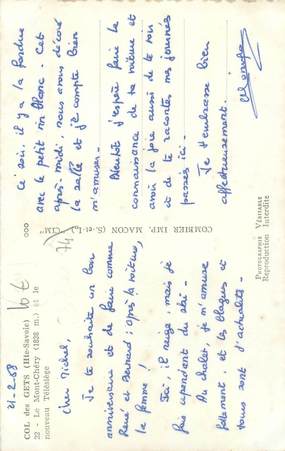 COL des GETS (Hte-Savoie)
22 - Le Mont-Chéry (1838 m.) et le
nouveau Télésiège
21.2.68
Cher Michel,
Je te souhaite un bon
anniversaire et de faire comme
René et Bernard : après la voiture,
la femme !
Ici, il neige, mais je
fais cependant du ski -
Au chalet, je m'amuse
follement, et les blagues et
tours sont d'actualités -
Ce soir, il y a la fondue
avec le petit vin blanc. Cet
après-midi, nous avons décoré
la salle et j'y compte bien
m'amuser -
Bientôt j'espère faire la
connaissance de ta voiture et
avoir la joie aussi de te voir
et de te raconter mes journées
passées ici -
Je t'embrasse bien
affectueusement.
COMBIER IMP. MACON (S.-et-L.) "CIM"
74
PHOTOGRAPHIE VÉRITABLE
Reproduction Interdite